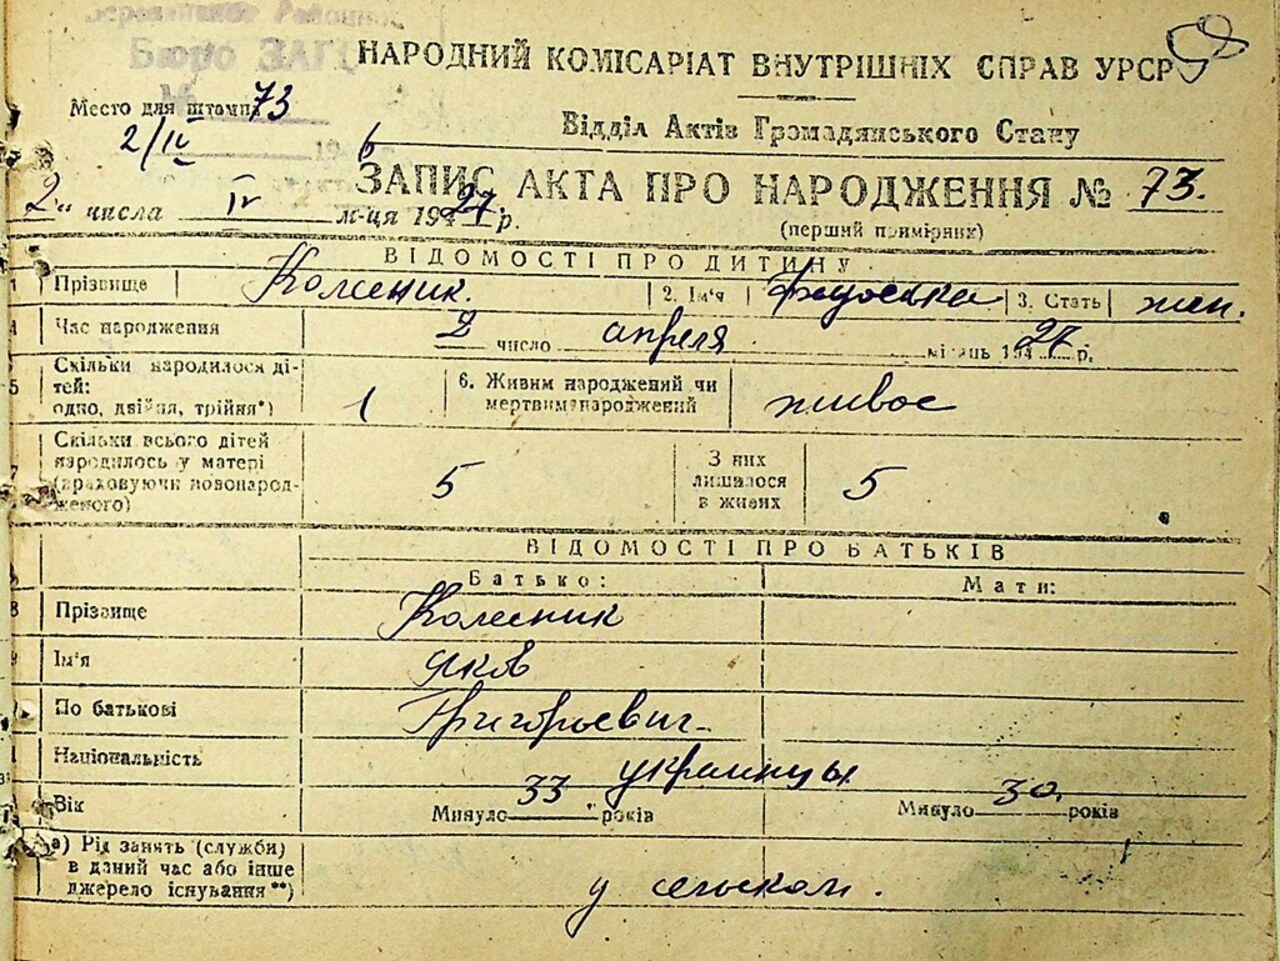 Районн
Бюро ЗАГС
НАРОДНИЙ КОМІСАРІАТ ВНУТРІШНІХ СПРАВ УРСР
Место для штампа 73
Відділ Актів Громадянського Стану
2/IV 194 6
ЗАПИС АКТА ПРО НАРОДЖЕННЯ № 73.
2 " числа IV м-ця 19 27 р.
(перший примірник)
ВІДОМОСТІ ПРО ДИТИНУ
1 Прізвище Колесник. 2. Ім'я 3. Стать жен.
4 Час народження 2 число апреля місяць 194 27 р.
5 Скільки народилося ді-
тей:
одно, двійня, трійня*) 1 6. Живим народжений чи
мертвим народжений живое
7 Скільки всього дітей
народилось у матері
(враховуючи новонарод-
женого) 5 З них
лишалося
в живих 5
ВІДОМОСТІ ПРО БАТЬКІВ
Батько: Мати:
8 Прізвище Колесник
9 Ім'я Яков
По батькові Григорьевич
Національність украинцы
Вік Минуло 33 років Минуло 30 років
а) Рід занять (служби)
в даний час або інше
джерело існування**) у сельхоз.